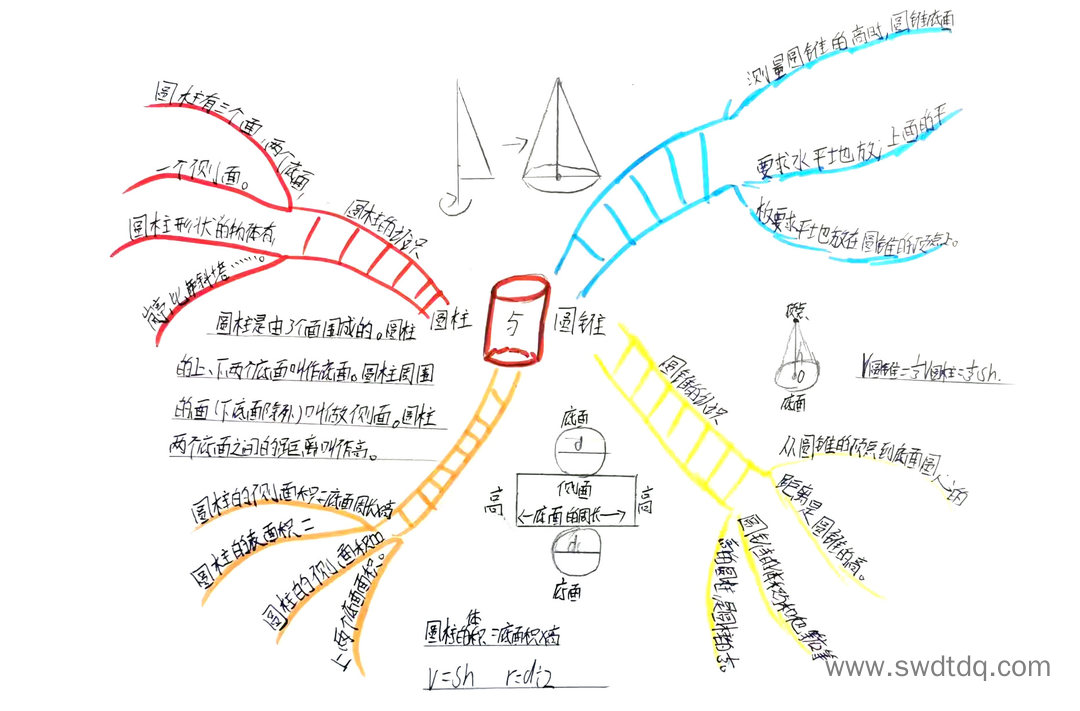 圆柱有三个面,两个底面,
一个侧面。
圆柱形状的物体有
比萨斜塔……。
圆柱的认识
圆柱
5
圆锥
测量圆锥的高时,圆锥底面
要求水平地放;上面的平
板要求平地放在圆锥的顶点上。
圆柱是由3个面围成的。圆柱
的上、下两个底面叫作底面。圆柱周围
的面(下底面除外)叫做侧面。圆柱
两个底面之间的距离叫作高。
顶点
h
O
底面
V圆锥=⅓V圆柱=⅓sh.
圆锥的认识
从圆锥的顶点到底面圆心的
距离是圆锥的高。
圆锥的体积和它等底等
高的圆柱,是圆柱的
底面
d
高
侧面
高
←底面的周长→
d
底面
圆柱的侧面积=底面周长×高
圆柱的表面积=
圆柱的侧面积加
上两个底面面积。
圆柱的体积=底面积×高
V=sh r=d÷2
www.swdtdq.com